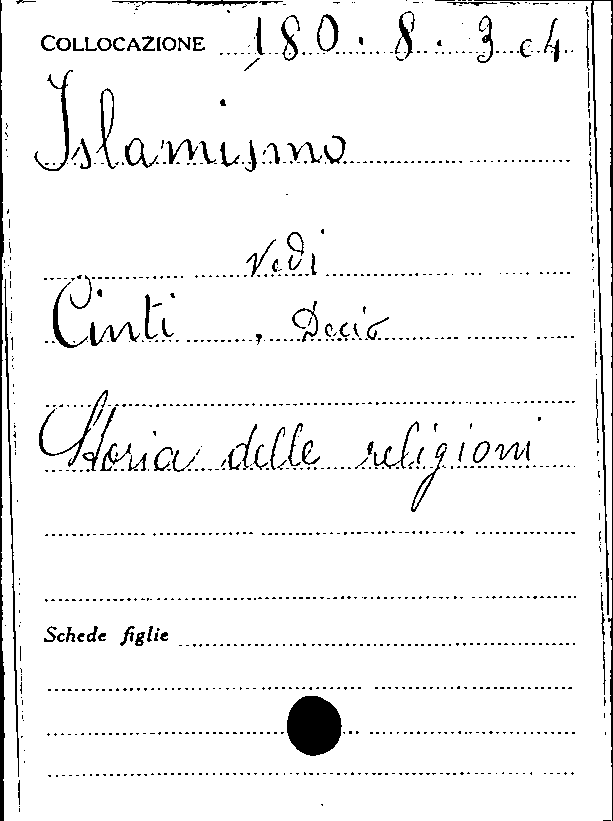 COLLOCAZIONE 180.8.3 e4
Islamismo
Vedi
Cinti, Decio
Storia delle religioni
Schede figlie